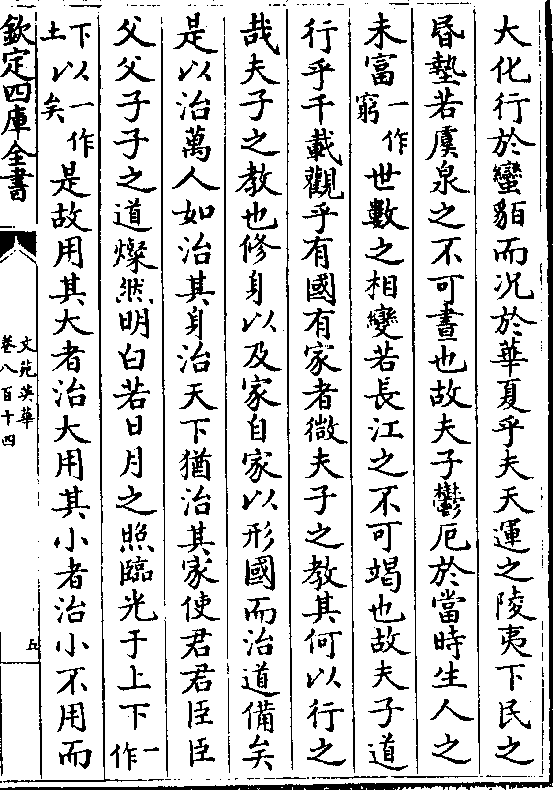 大化行於蠻貊而况於華夏乎夫天運之陵夷下民之
昏墊若虞泉之不可晝也故夫子鬱厄於當時生人之
未富一作窮世數之相變若長江之不可竭也故夫子道
行乎千載觀乎有國有家者微夫子之教其何以行之
哉夫子之教也修身以及家自家以形國而治道備矣
是以治萬人如治其身治天下猶治其家使君君臣臣
父父子子之道燦然明白若日月之照臨光于上下一作
下土以一作矣是故用其大者治大用其小者治小不用而
欽定四庫全書
文苑英華
卷八百十四
五